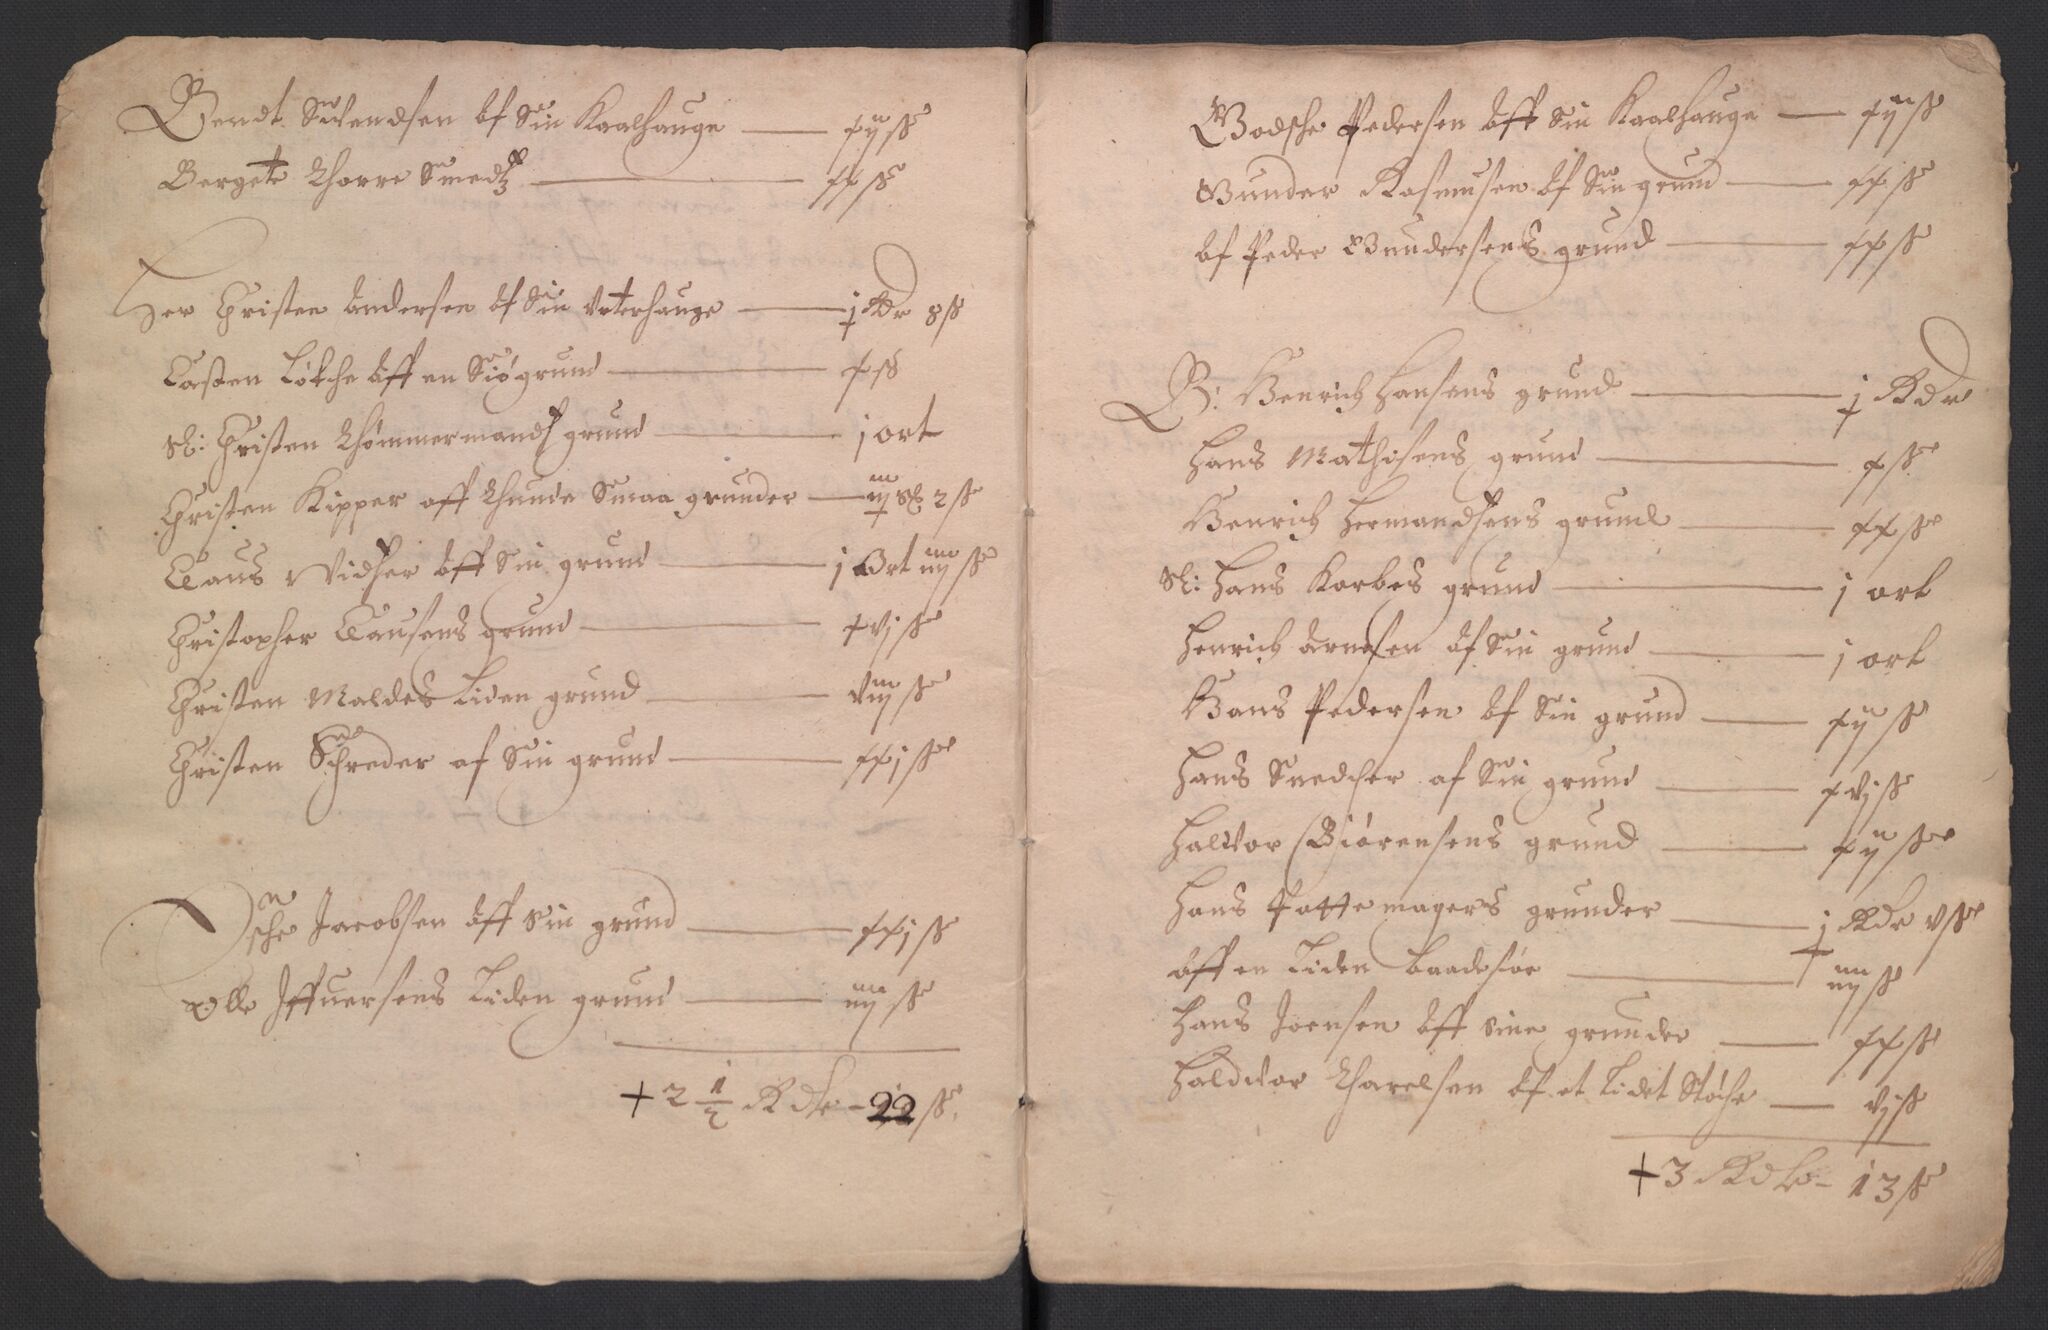 Bendt Swendsen af Sin Kaalhauge — xij ß
Bergete Thorre Smedtz — xx ß
Her Christen Andersen af Sin Urterhauge — j Rdr 8 ß
Casten Løtche aff en Siøgrund — x ß
Sl: Christen Thømmermands grund — j ort
Christen Kipper aff Thuende Smaa grunder — iij 2 ß
Claus Vidser aff Sin grund — j Ort iiij ß
Christopher Clausens grund — xvj ß
Christen Maldes Liden grund — viij ß
Christen Schreder af Sin grund — xxj ß
Jacobsen aff Sin grund — xxj ß
Olle Iffuersens Liden grund — iiij ß
+ 2 1/2 Rdr - 22 ß
Godsche Pedersen aff Sin Kaalhauge — xiij ß
Gunder Rasmusen af Sin grund — xx ß
af Peder Gundersens grund — xx ß
B: Henrich Hansens grund — j Rdr
Hans Mathisens grund — x ß
Henrich Hermandsens grund — xx ß
Sl: Hans Korbes grund — j ort
Henrich Arnesen af Sin grund — j ort
Hans Pedersen af Sin grund — xij ß
Hans Snedcher af Sin grund — xvj ß
Haldvor Biørensens grund — xij ß
Hans Pottemagers grunder — j Rdr v ß
aff en Liden Baadestøe — iiij ß
Hans Joensen aff sine grunder — xx ß
Haldvor Tharelsen af et Lidet Støche — vj ß
+ 3 Rdr - 13 ß